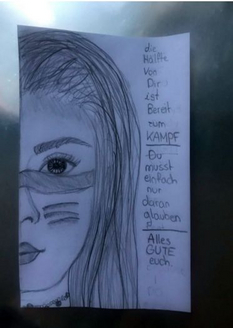 die
Hälfte
von
Dir
ist
Bereit
zum
KAMPF
Du
musst
einfach
nur
daran
glauben
Alles
GUTE
euch